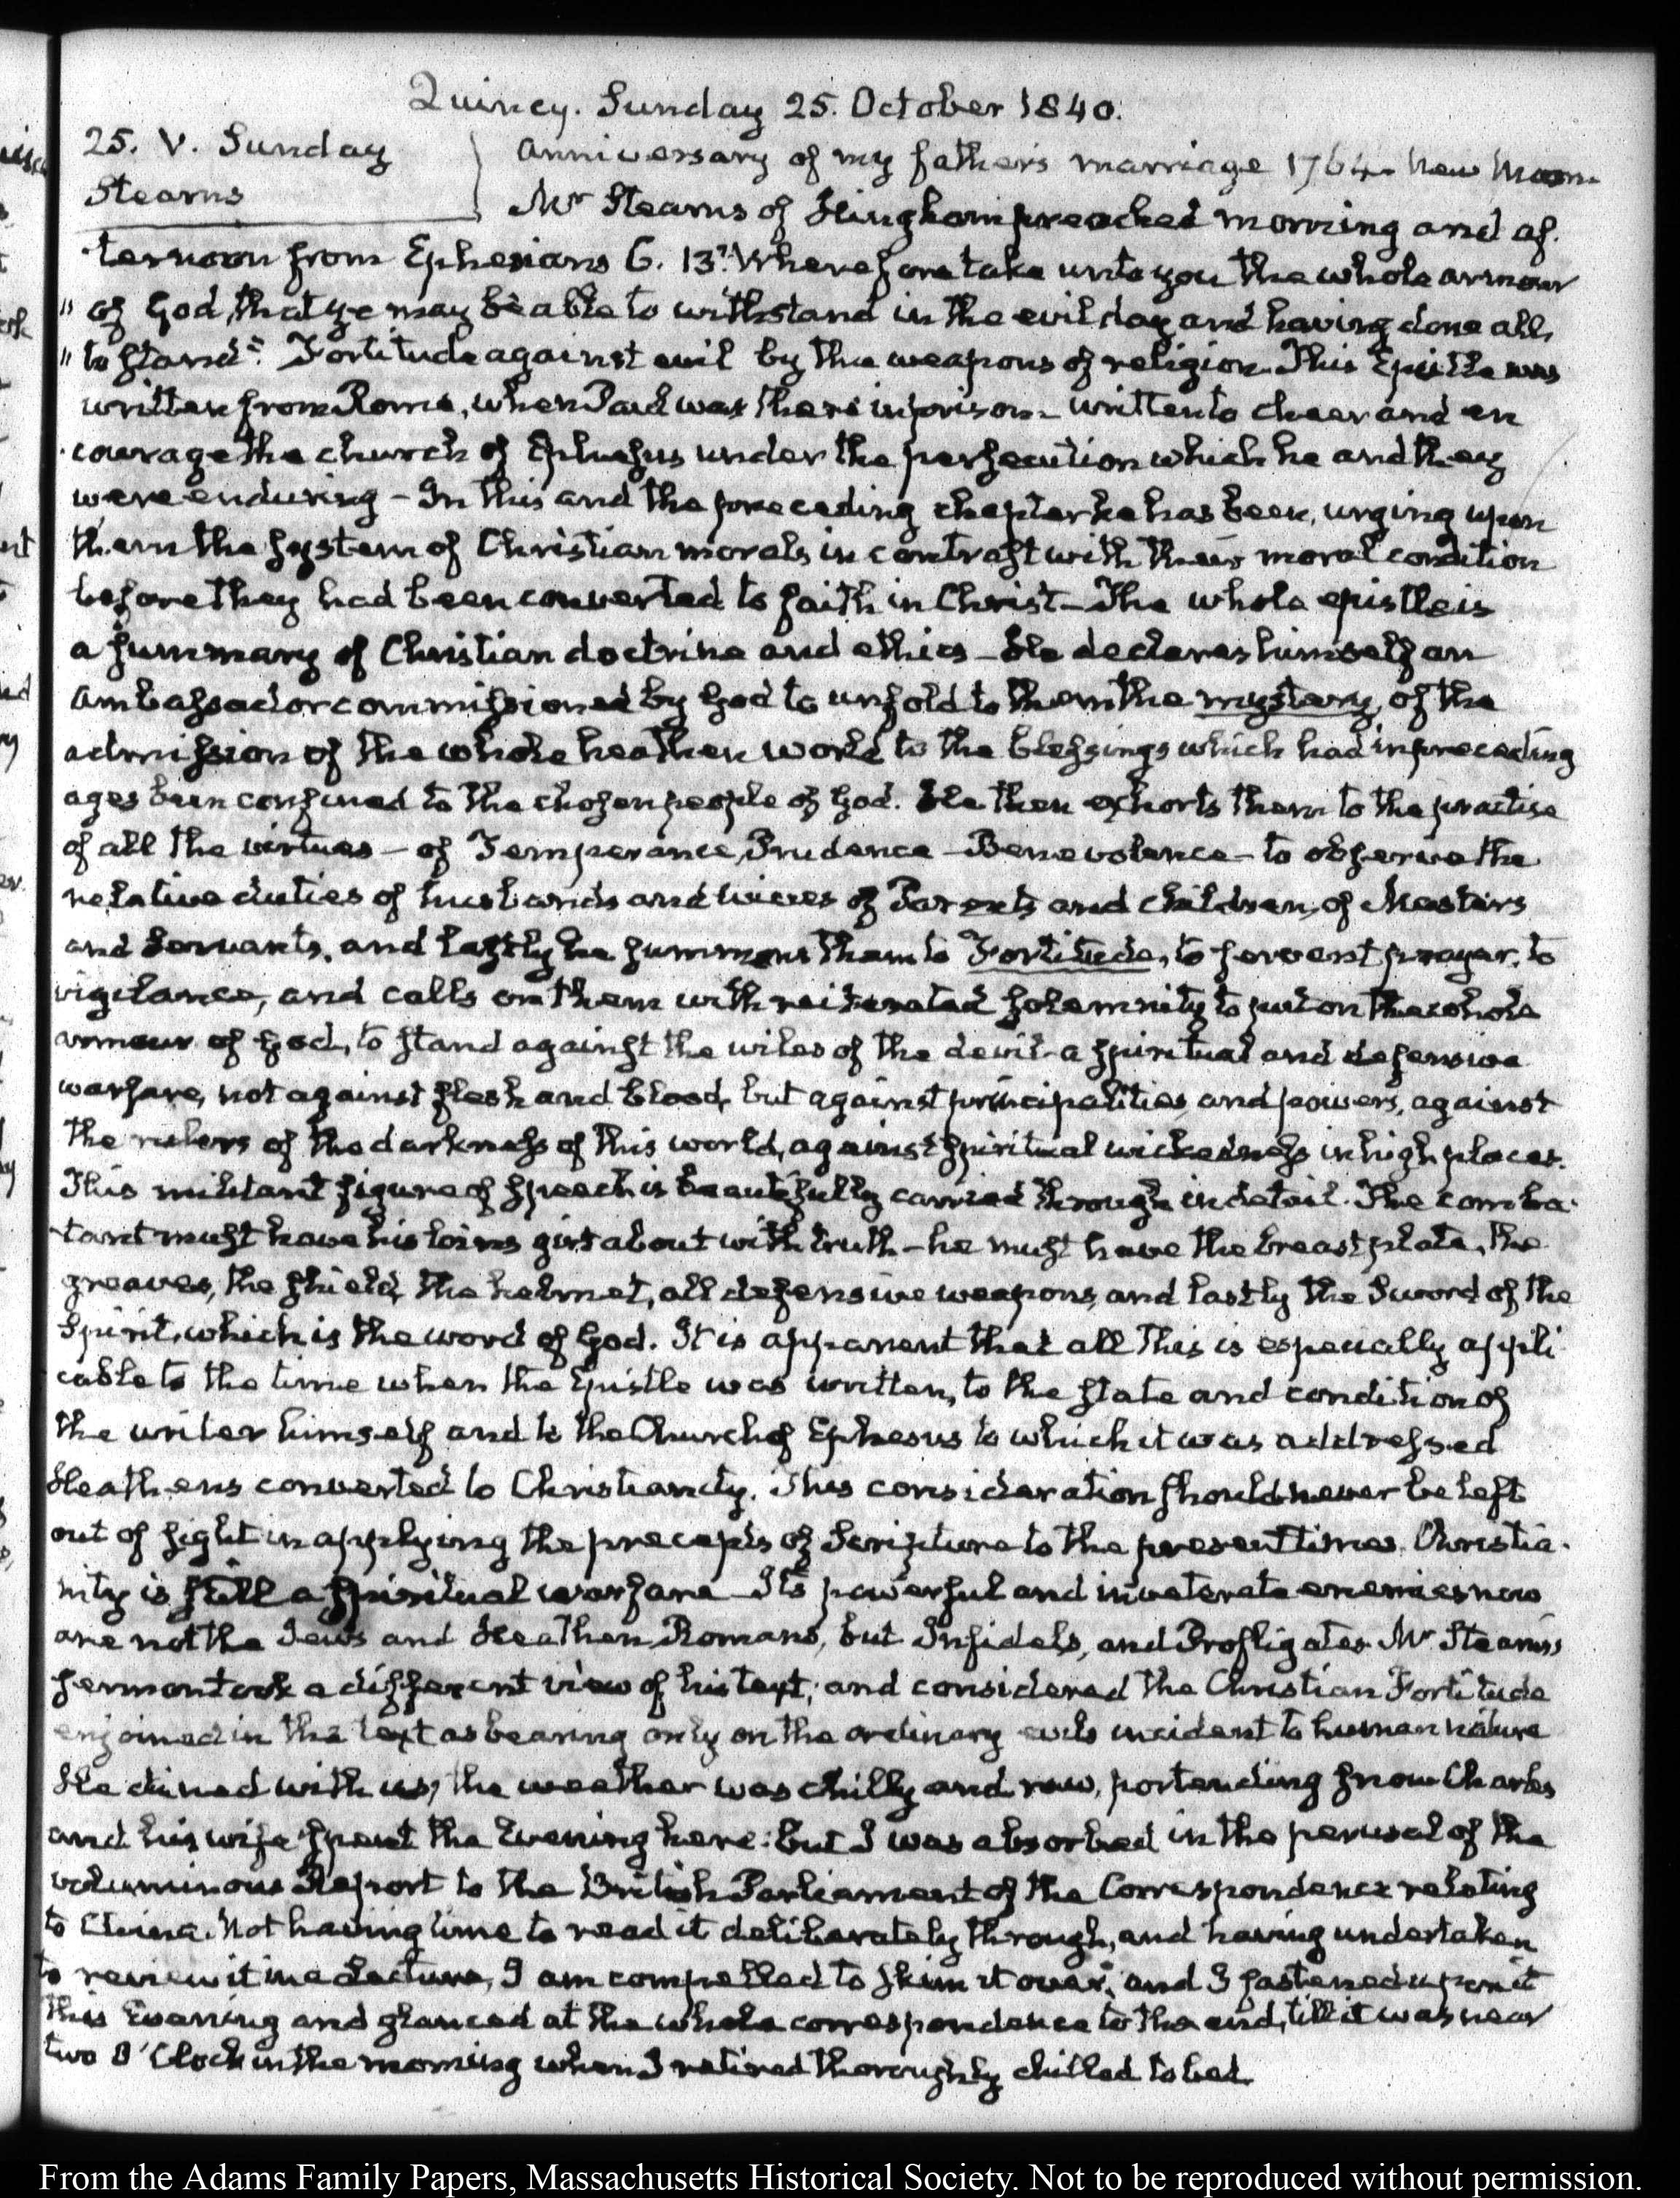 Quincy. Sunday 25. October 1840.
25. V. Sunday
Stearns
Anniversary of my father's marriage 1764. New Moon.
Mr Stearns of Hingham preached morning and af-
ternoon from Ephesians 6. 13. "Wherefore take unto you the whole armour
" of God, that ye may be able to withstand in the evil day and having done all,
" to stand". Fortitude against evil by the weapons of religion. This Epistle was
written from Rome, when Paul was there in prison — written to cheer and en
courage the church of Ephesus under the persecution which he and they
were enduring — In this and the preceding chapter he has been, urging upon
them the system of Christian morals, in contrast with their moral condition
before they had been converted to faith in Christ — The whole epistle is
a summary of Christian doctrine and ethics — He declares himself an
Ambassador commissioned by God to unfold to them the mystery, of the
admission of the whole heathen world to the blessings which had in preceding
ages been confined to the chosen people of God. He then exhorts them to the practise
of all the virtues — of Temperance, Prudence — Benevolence — to observe the
relative duties of husbands and wives of Parents and children, of Masters
and Servants, and lastly he summons them to Fortitude, to fervent prayer, to
vigilance, and calls on them with reiterated solemnity to put on the whole
armour of God, to stand against the wiles of the devil — a spiritual and defensive
warfare, not against flesh and blood, but against principalities, and powers, against
the rulers of the darkness of this world, against spiritual wickedness in high places.
This militant figure of speech is beautifully carried through in detail. The comba-
tant must have his loins girt about with truth — he must have the breastplate, the
greaves, the shield, the helmet, all defensive weapons, and lastly the Sword of the
Spirit, which is the word of God. It is apparent that all this is especially appli
cable to the time when the Epistle was written, to the state and condition of
the writer himself and to the Church of Ephesus to which it was addressed
Heathens converted to Christianity. This consideration should never be left
out of sight in applying the precepts of Scripture to the present times. Christia-
nity is still a spiritual warfare — Its powerful and inveterate enemies now
are not the Jews and Heathen Romans, but Infidels, and Profligates. Mr Stearns's
sermon took a different view of his text; and considered the Christian Fortitude
enjoined in the text as bearing only on the ordinary evils incident to human nature
He dined with us; the weather was chilly and raw, portending snow. Charles
and his wife spent the Evening here: but I was absorbed in the perusal of the
voluminous Report to the British Parliament of the Correspondence relating
to China. Not having time to read it deliberately through, and having undertaken
to review it in a Lecture, I am compelled to skim it over; and I fastened upon it
this Evening and glanced at the whole correspondence to the end, till it was near
two O'Clock in the morning when I retired thoroughly chilled to bed.
From the Adams Family Papers, Massachusetts Historical Society. Not to be reproduced without permission.